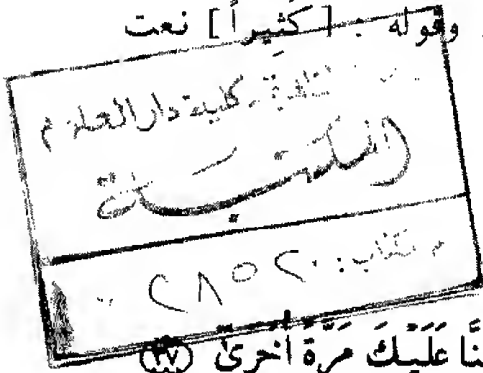 وقوله : [ كَثِيراً ] نعت
القاهرة - كلية دار العلوم
المكتبة
كتاب : ٢٨٥٢٠
نَّا عَلَيْكَ مَرَّةً أُخْرَىٰ (٣٧)